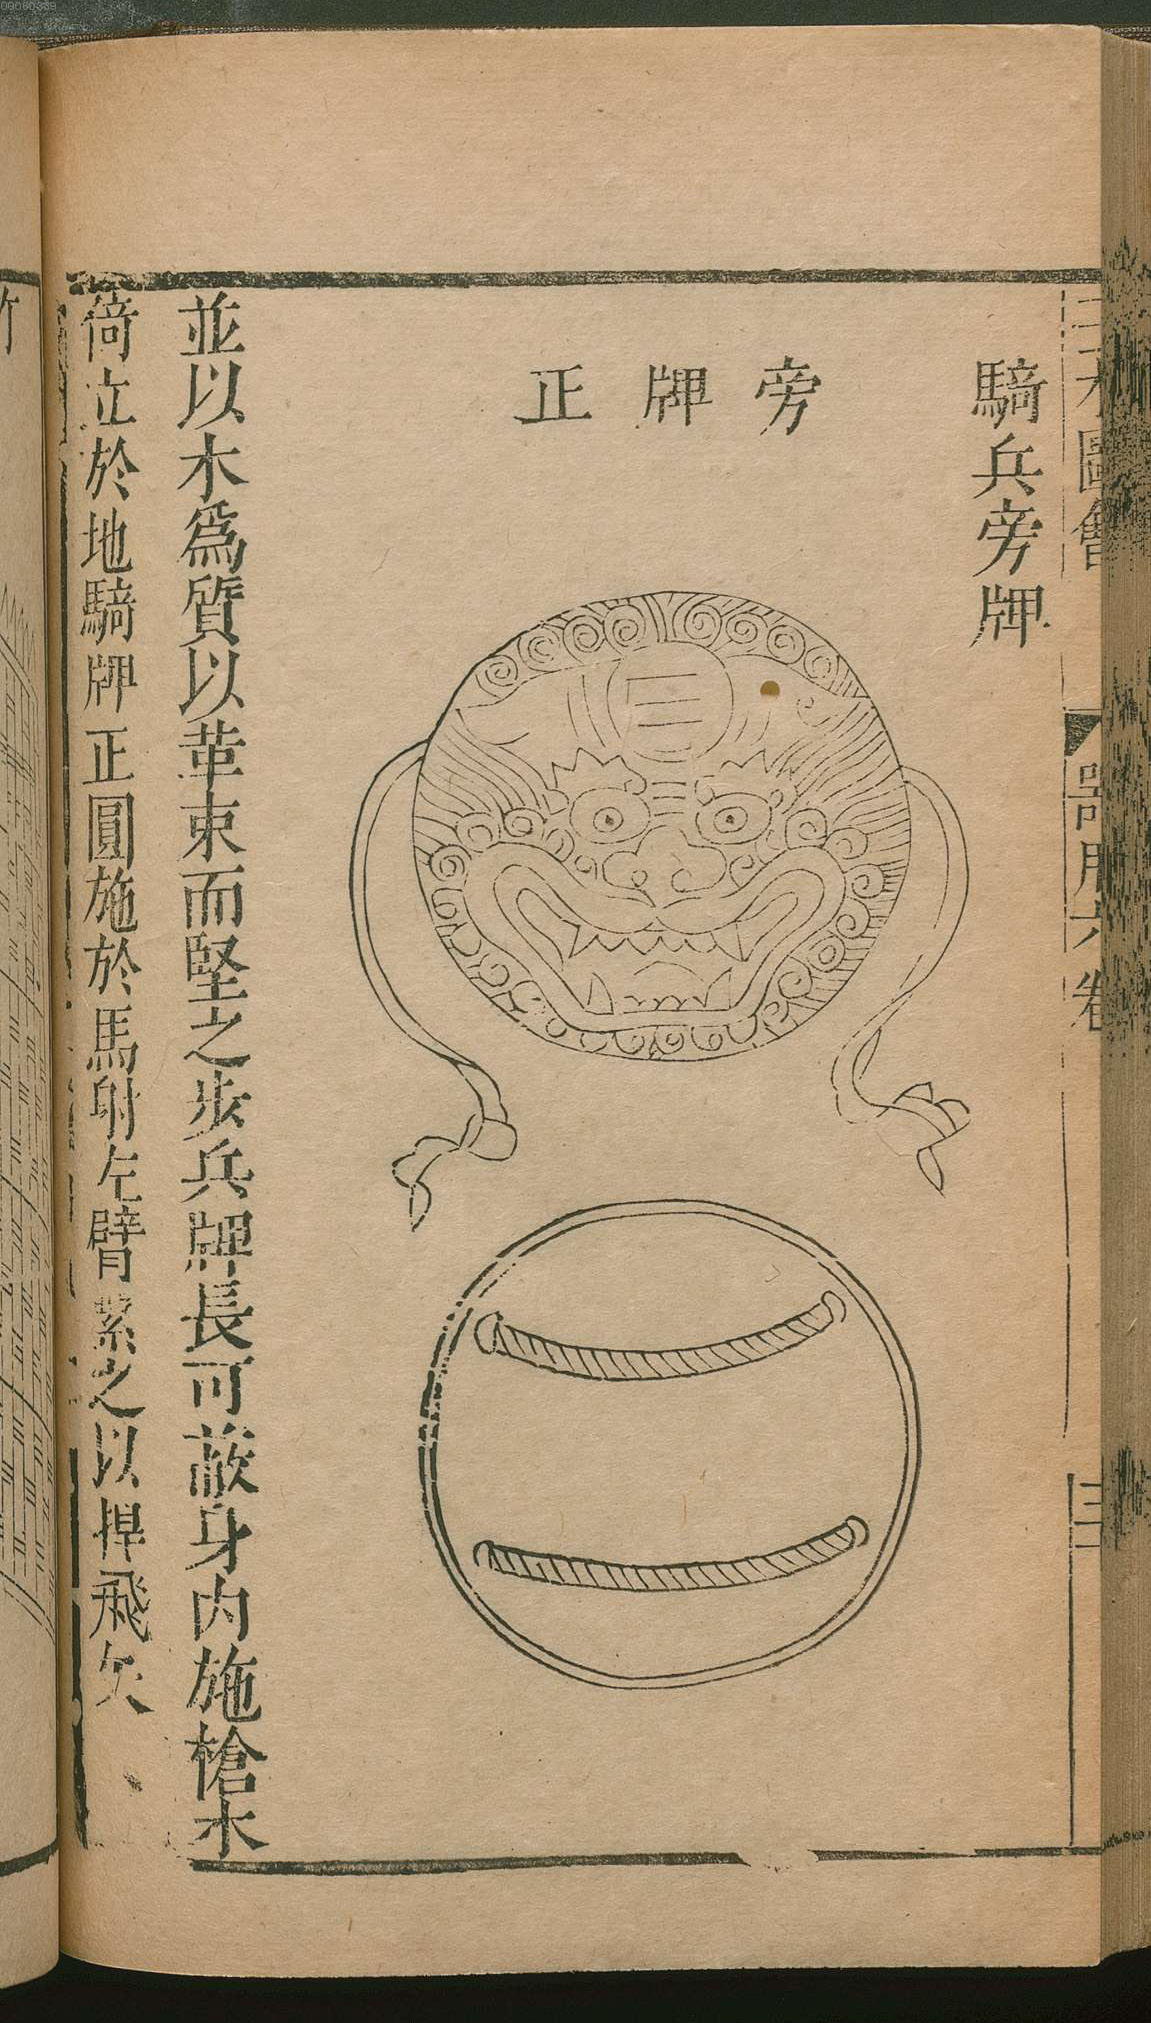 三才圖會
器用六卷
騎兵旁牌
旁牌正
並以木爲質以革束而堅之步兵牌長可蔽身内施槍木
倚立於地騎牌正圓施於馬射左臂繫之以捍飛矢